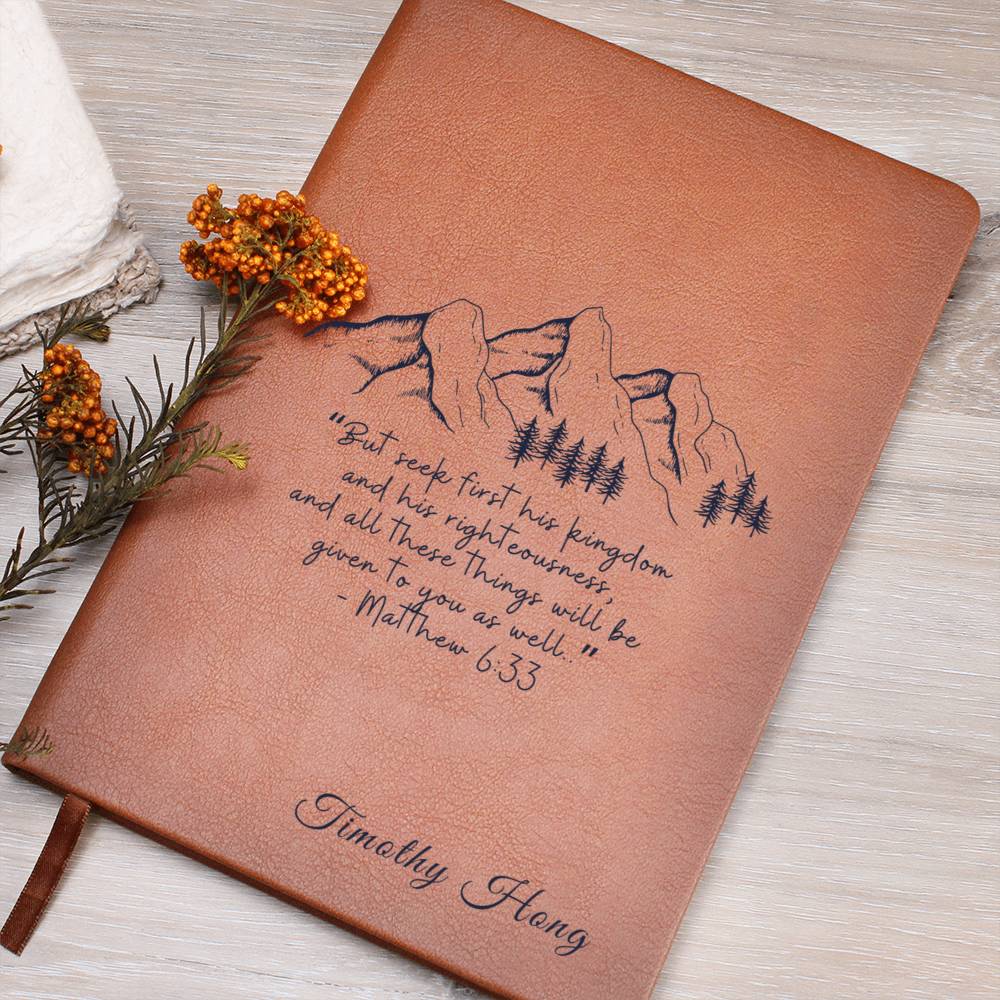 "But seek first his kingdom
and his righteousness,
and all these things will be
given to you as well.."
- Matthew 6:33
Timothy Hong